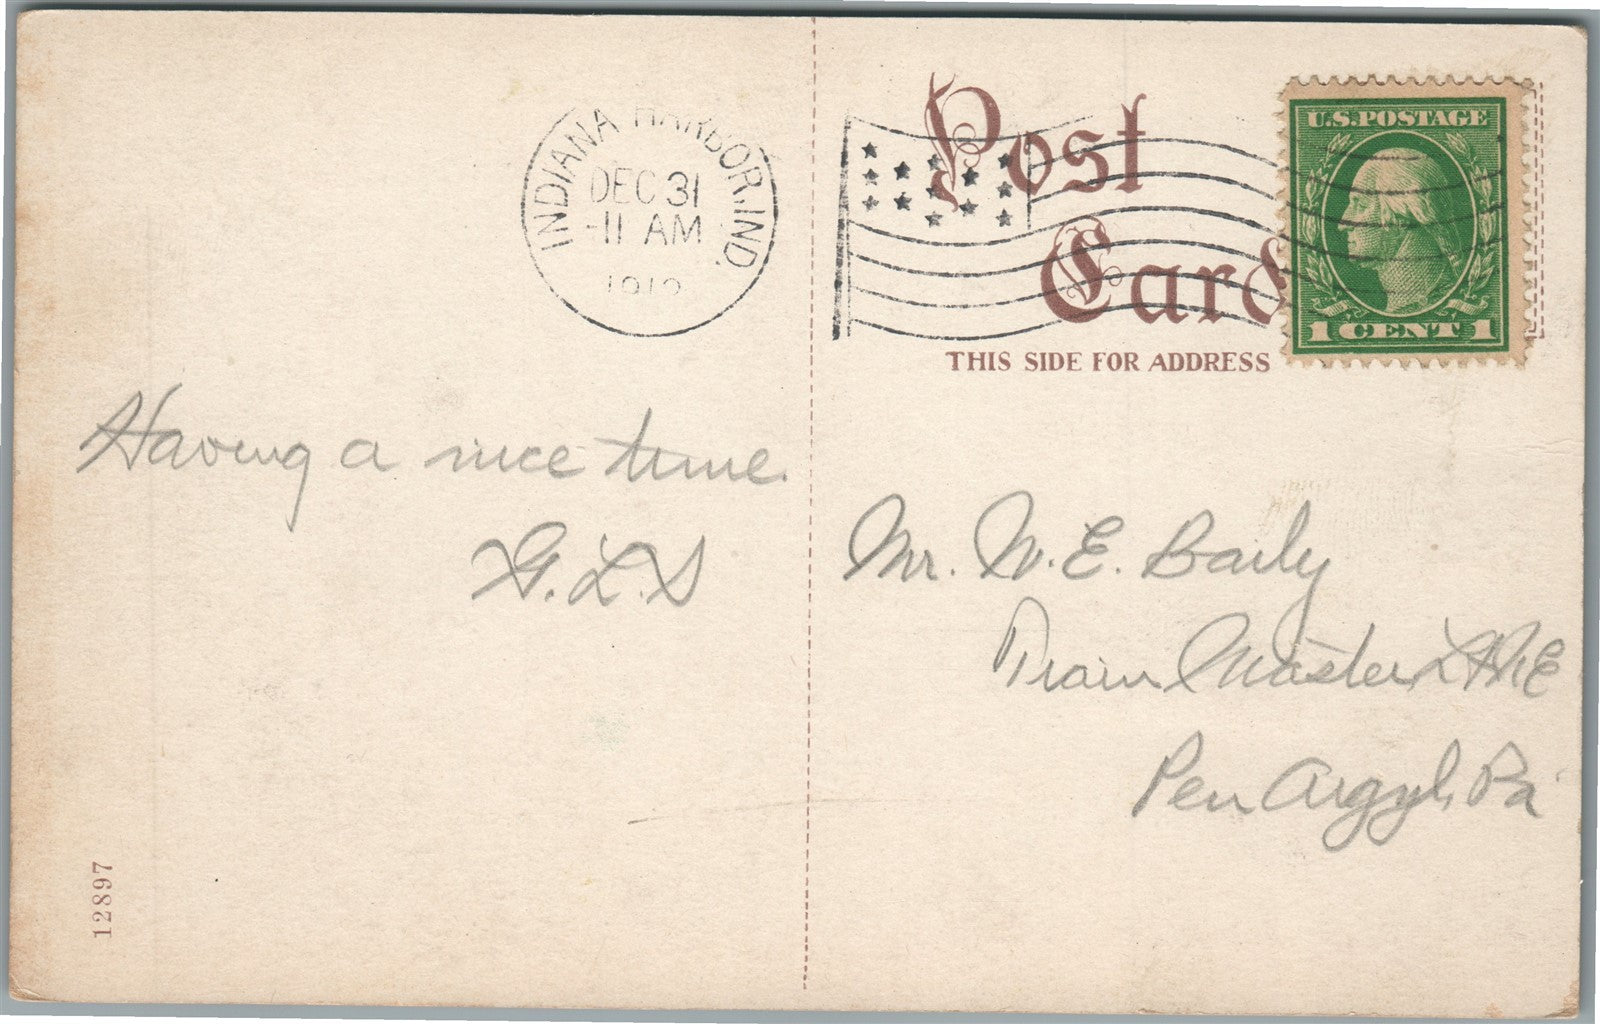 INDIANA HARBOR, IND.
DEC 31
-11 AM
1912
Post
Card
THIS SIDE FOR ADDRESS
U.S. POSTAGE
1 CENT 1
Having a nice time.
G. L. S
Mr. W. E. Baily
Train Master
Pen Argyl, Pa
12897